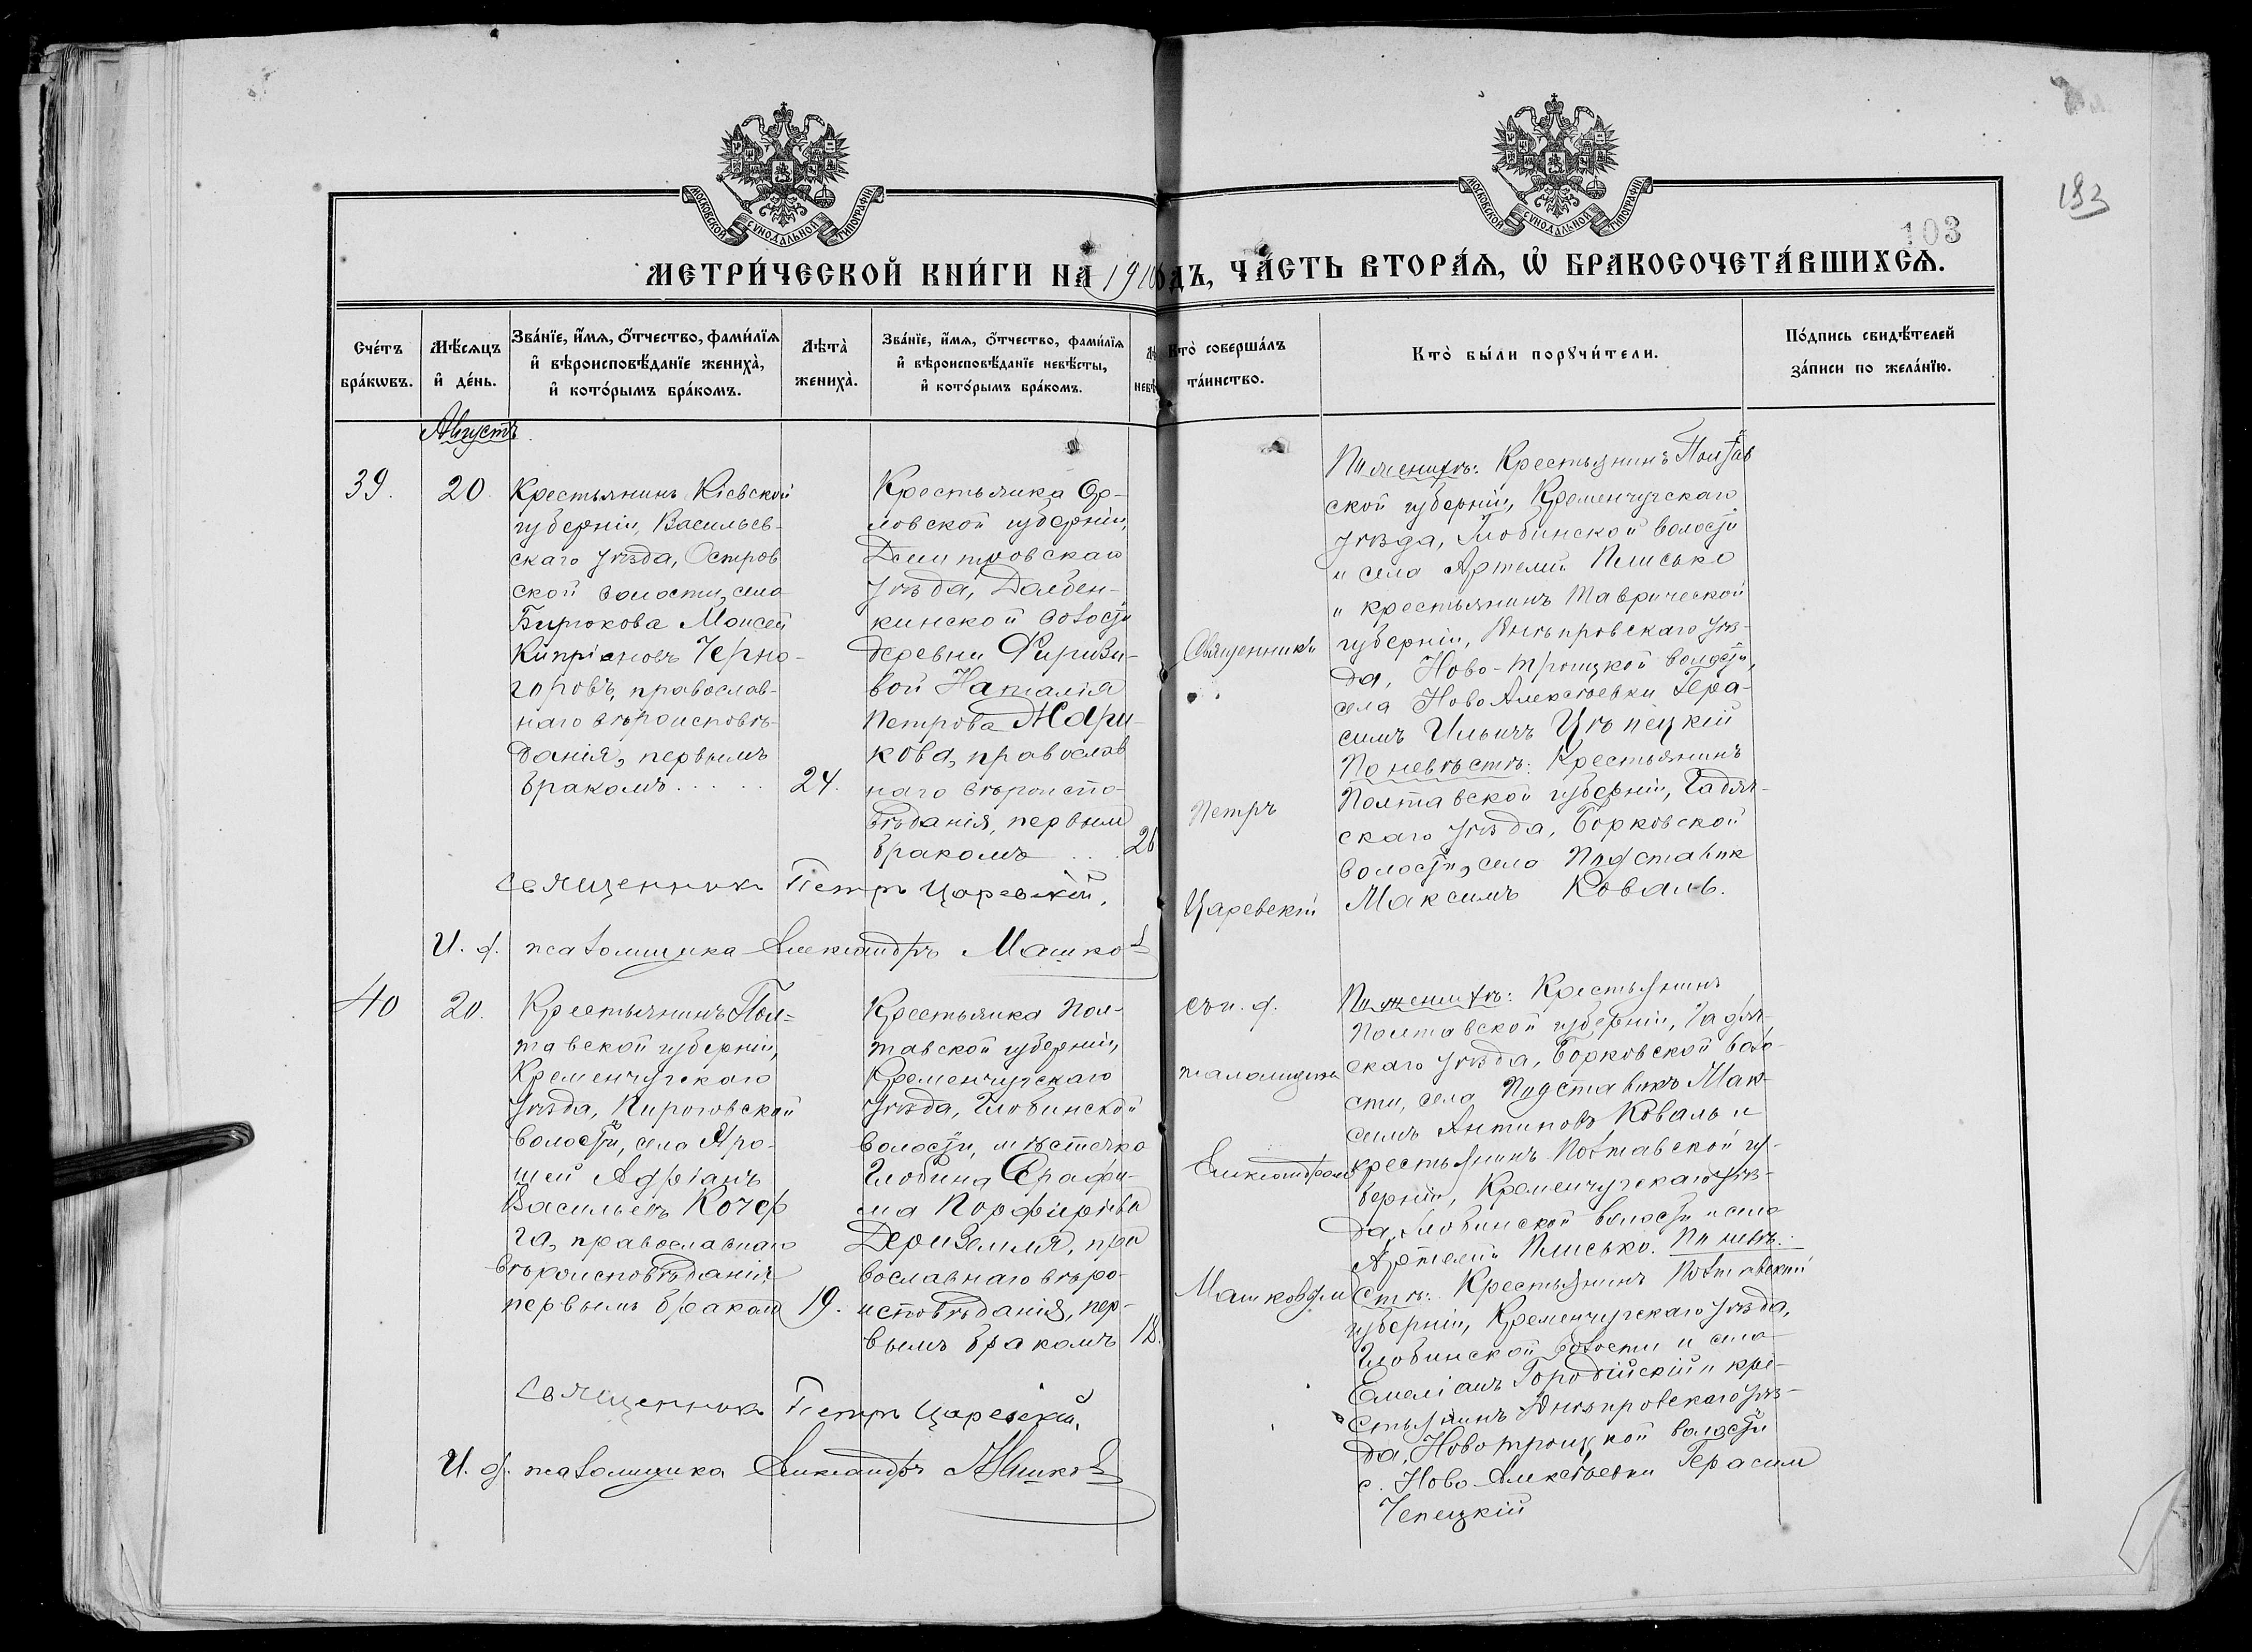 МОСКОВСКОЙ СУНОДАЛЬНОЙ ТИПОГРАФІИ
МОСКОВСКОЙ СУНОДАЛЬНОЙ ТИПОГРАФІИ
103
МЕТРИ́ЧЕСКОЙ КНИ́ГИ НА 1910 ГОДЪ, ЧА́СТЬ ВТОРА́Ѧ, Ѽ БРАКОСОЧЕТА́ВШИХСѦ.
Сче́тъ бра́кѡвъ.
Мѣ́сяцъ и҆ де́нь.
Зва́нїе, и҆́мѧ, ѻ҆́тчество, фами́лїѧ
и҆ вѣроисповѣ́данїе жениха̀,
и҆ кото́рымъ бра́комъ.
Лѣта̀ жениха̀.
Зва́нїе, и҆́мѧ, ѻ҆́тчество, фами́лїѧ
и҆ вѣроисповѣ́данїе невѣ́сты,
и҆ кото́рымъ бра́комъ.
Кто̀ соверша́лъ та́инство.
Кто̀ бы́ли порꙋчи́тели.
По́дпись свидѣ́телей
за́писи по жела́нїю.
Августъ
39.
20
Крестьянинъ Кіевской
губерніи, Васильев-
скаго уѣзда, Остров
ской волости, села
Бирюкова Моисей
Кипріановъ Черно-
горовъ, православ-
наго вѣроисповѣ-
данія, первымъ
бракомъ . . . . .
24.
Крестьянка Ор-
ловской губерніи,
Дмитровскаго
уѣзда, Долбен-
кинской волости
деревни
вой Наталія
Петрова Жари-
кова, православ
наго вѣроиспо-
вѣданія, первым
бракомъ . . .
Священникъ
Петръ
Царевскій
По женихѣ: Крестьянинъ Полтав
ской губерніи, Кременчугскаго
уѣзда, Глобинской волости
и села Артемій Плисько
и крестьянинъ Таврической
губерніи, Днѣпровскаго уѣз-
да, Ново-Троицкой волости,
села Ново Алексѣевки Гера-
симъ Ильичъ Цѣпецкій
По невѣстѣ: Крестьянинъ
Полтавской губерніи, Гадяч-
скаго уѣзда, Борковской
волости, села Подставок
Максимъ Коваль.
Священникъ Петръ Царевскій.
И. д. псаломщика Александръ Машков
40
20.
Крестьянинъ Пол-
тавской губерніи,
Кременчугскаго
уѣзда, Пироговской
волости, села Яро-
шей Адріанъ
Васильевъ Кочер
га, православнаго
вѣроисповѣданія
первымъ браком
19.
Крестьянка Пол-
тавской губерніи,
Кременчугскаго
уѣзда, Глобинской
волости, мѣстечка
Глобина Серафи-
ма Порфиріева
Дериземля, пра
вославнаго вѣро-
исповѣданія, пер-
вымъ бракомъ
18.
съ и. д.
псаломщика
Александромъ
Машковым
По женихѣ: Крестьянинъ
Полтавской губерніи, Гадяч-
скаго уѣзда, Борковской воло-
сти, села Подставокъ Мак-
симъ Антиповъ Коваль и
крестьянинъ Полтавской гу-
берніи, Кременчугскаго уѣз-
да, Глобинской волости и села
Артемій Плисько. По невѣ-
стѣ: Крестьянинъ Полтавской
губерніи, Кременчугскаго уѣзда,
Глобинской волости и села
Емеліанъ Городійскій и кре-
стьянинъ Днѣпровскаго уѣз-
да, Новотроицкой волости
с. Ново Алексѣевки Герасим
Чепецкій
Священникъ Петръ Царевскій.
И. д. псаломщика Александръ Машков